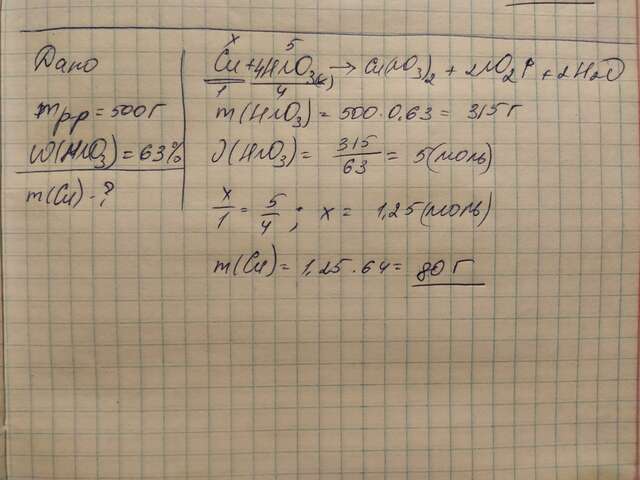 Дано
mрр = 500г
ω(HNO3) = 63%
m(Cu) - ?
x 5
Cu + 4HNO3(к) → Cu(NO3)2 + 2NO2↑ + 2H2O
1 4
m(HNO3) = 500 · 0,63 = 315 г
ν(HNO3) = 315/63 = 5 (моль)
x/1 = 5/4 ; x = 1,25 (моль)
m(Cu) = 1,25 · 64 = 80 г